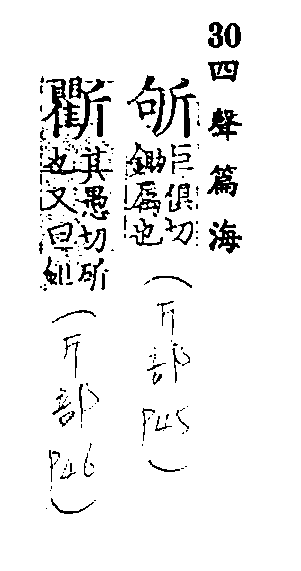 30四聲篇海
斪巨俱切
鋤属也
(斤部P45)
其愚切斫
也又曰鉏
(斤部P46)